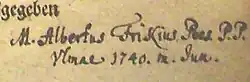 gegeben
M. Albertus Frikius Poes. P. P.
Vlmae 1740. m. Jun.